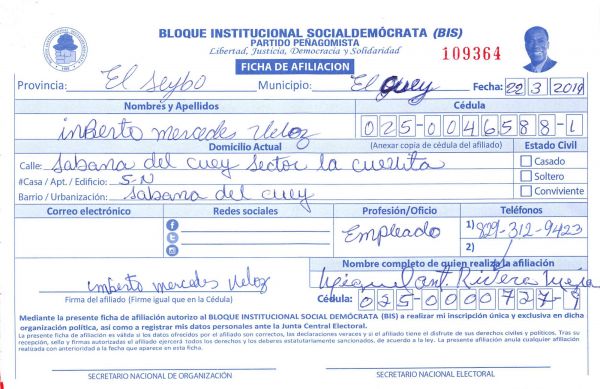 BLOQUE INSTITUCIONAL SOCIALDEMÓCRATA (BIS)
PARTIDO PEÑAGOMISTA
Libertad, Justicia, Democracia y Solidaridad
109364
FICHA DE AFILIACION
Provincia: El seybo Municipio: El Cuey Fecha: 22 3 2019
Nombres y Apellidos Cédula
inBerto mercedes Veloz 025-0046588-1
Domicilio Actual (Anexar copia de cédula del afiliado) Estado Civil
Calle: Sabana del cuey Sector la cuevita Casado
#Casa / Apt. / Edificio: S-N Soltero
Barrio / Urbanización: Sabana del cuey Conviviente
Correo electrónico Redes sociales Profesión/Oficio Teléfonos
Empleado 1) 829-312-9423
2)
Nombre completo de quien realiza la afiliación
imberto mercedes Veloz Miguel ant. Rivera Mejia
Firma del afiliado (Firme igual que en la Cédula) Cédula: 025-0000727-9
Mediante la presente ficha de afiliación autorizo al BLOQUE INSTITUCIONAL SOCIAL DEMÓCRATA (BIS) a realizar mi inscripción única y exclusiva en dicha
organización política, así como a registrar mis datos personales ante la Junta Central Electoral.
La presente ficha de afiliación es válida si los datos ofrecidos por el afiliado son correctos, las declaraciones veraces y si el afiliado tiene el disfrute de sus derechos civiles y políticos. Tras su
recepción, sello y firmas autorizadas el afiliado ejercerá todos los derechos y los deberes estatutariamente sancionados, de acuerdo a la ley. La presente afiliación anula cualquier afiliación
realizada con anterioridad a la fecha que aparece en esta ficha.
SECRETARIO NACIONAL DE ORGANIZACIÓN SECRETARIO NACIONAL ELECTORAL